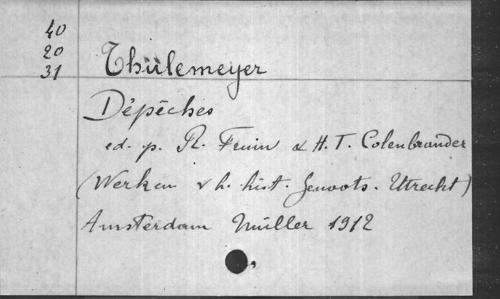 40
20
31
Thülemeyer
Dépêches
ed. p. R. Fruin & H. T. Colenbrander
(Werken v h. hist. Genoots. Utrecht)
Amsterdam Müller 1912